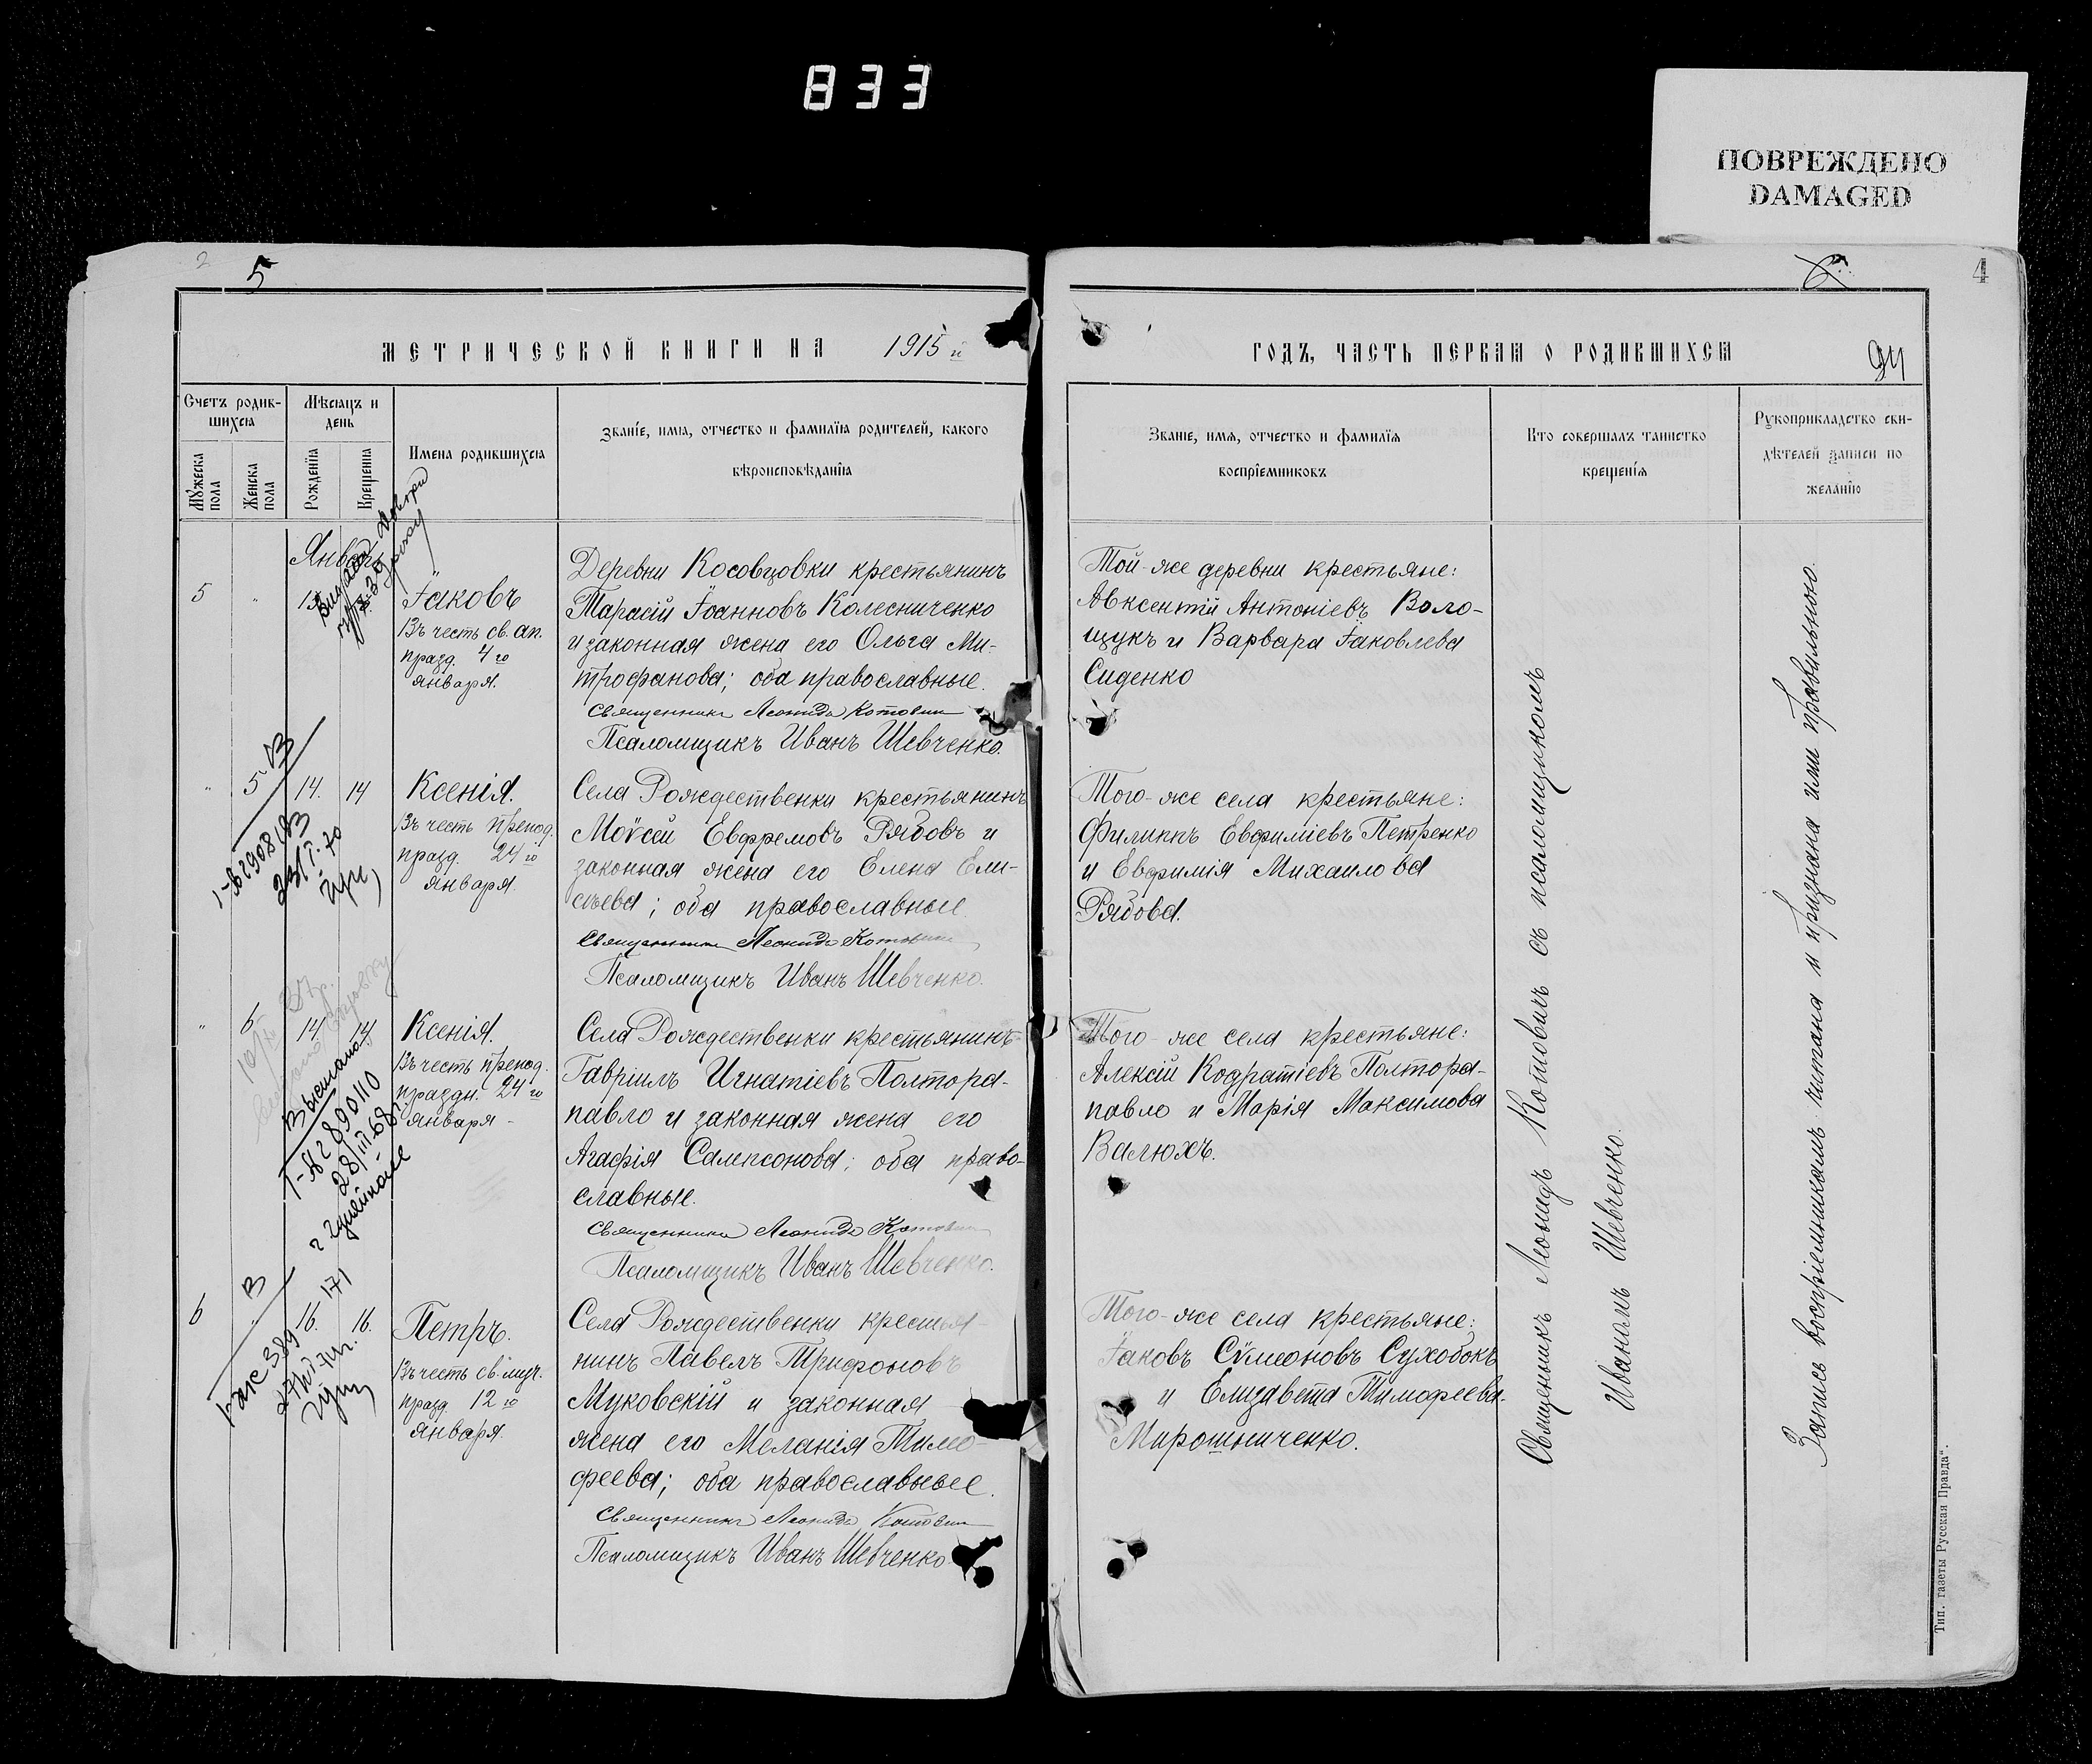 833
ПОВРЕЖДЕНО
DAMAGED
2
5
4
МЕТРИЧЕСКОЙ КНИГИ НА 1915 й
ГОДЪ, ЧАСТЬ ПЕРВАЯ О РОДИВШИХСЯ
Счетъ родив-
шихся
Мѣсяцъ и
день
Мужеска
пола
Женска
пола
Рожденія
Крещенія
Имена родившихся
Званіе, имя, отчество и фамилія родителей, какого
вѣроисповѣданія
Званіе, имя, отчество и фамилія
воспріемниковъ
Кто совершалъ таинство
крещенія
Рукоприкладство сви-
дѣтелей записи по
желанію
Январь
5
Іаковъ
Въ честь св. ап.
празд. 4 го
января.
Деревни Косовцовки крестьянинъ
Тарасій Іоанновъ Колесниченко
и законная жена его Ольга Ми-
трофанова; оба православные.
Священникъ Леонидъ Котович
Псаломщикъ Иванъ Шевченко.
Той-же деревни крестьяне:
Авксентій Антоніевъ Воло-
щукъ и Варвара Іаковлева
Сиденко
" 5 14. 14
Ксенія.
Въ честь препод.
празд. 24 го
января.
Села Рождественки крестьянинъ
Моѵсей Евфремовъ Рябовъ и
законная жена его Елена Ели-
сѣева; оба православные
Священникъ Леонидъ Котович
Псаломщикъ Иванъ Шевченко.
Того-же села крестьяне:
Филиппъ Евфиміевъ Петренко
и Евфимія Михаилова
Рябова.
" 6 14 14
Ксенія.
Въ честь препод.
праздн. 24 го
января
Села Рождественки крестьянинъ
Гавріилъ Игнатіевъ Полтора-
павло и законная жена его
Агафія Сампсонова; оба право-
славные.
Священникъ Леонидъ Котович
Псаломщикъ Иванъ Шевченко.
Того-же села крестьяне:
Алексій Кодратіевъ Полтора-
павло и Марія Максимова
Валюхъ.
6 16. 16.
Петръ.
Въ честь св. муч.
празд 12 го
января.
Села Рождественки крестья-
нинъ Павелъ Трифоновъ
Муковскій и законная
жена его Меланія Тимо-
феева; оба православные.
Священникъ Леонидъ Котович
Псаломщикъ Иванъ Шевченко
Того-же села крестьяне:
Іаковъ Сѵмеоновъ Сухобокъ
и Елизавета Тимофеева.
Мирошниченко.
Священникъ Леонидъ Котовичъ съ псаломщикомъ
Иваномъ Шевченко.
Запись воспріемникамъ читана и признана ими правильною.
Тип. газеты Русская Правда".